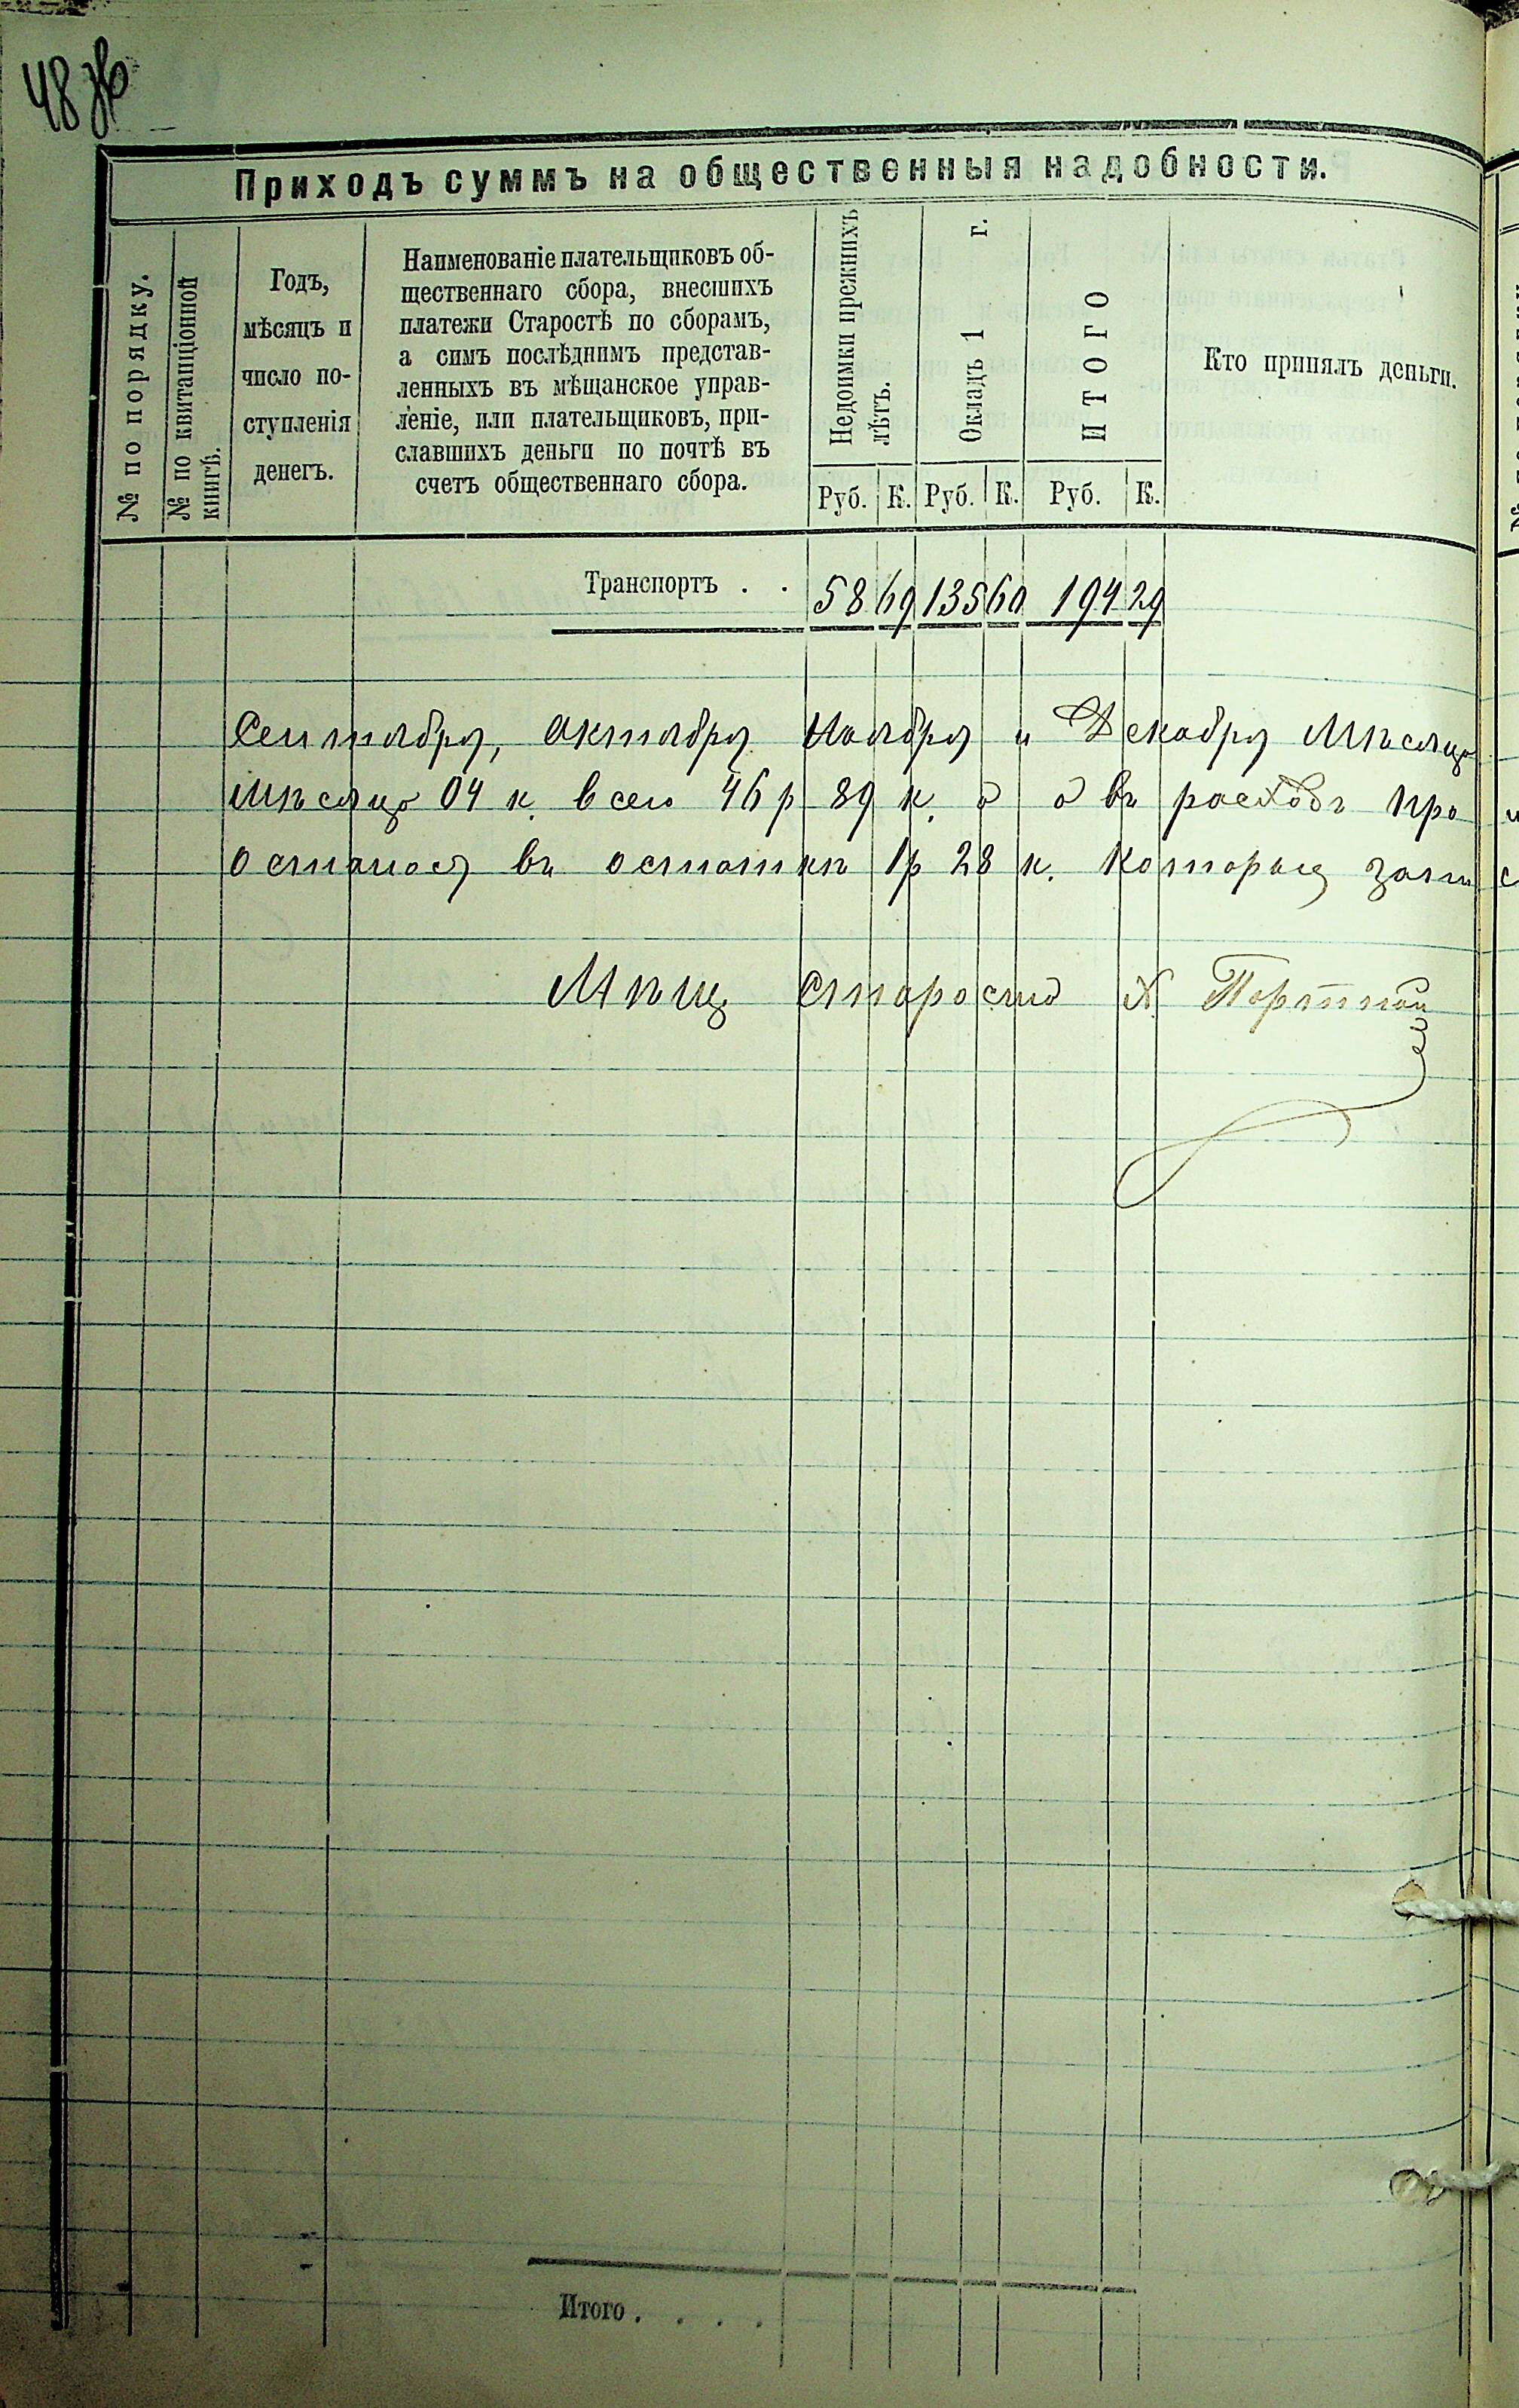 48 об
Приходъ суммъ на общественныя надобности.
№ по порядку.
№ по квитанціонной
книгѣ.
Годъ,
мѣсяцъ и
число по-
ступленія
денегъ.
Наименованіе плательщиковъ об-
щественнаго сбора, внесшихъ
платежи Старостѣ по сборамъ,
а симъ послѣднимъ представ-
ленныхъ въ мѣщанское управ-
леніе, или плательщиковъ, при-
славшихъ деньги по почтѣ въ
счетъ общественнаго сбора.
Недоимки прежнихъ
лѣтъ.
Окладъ 1 г.
ИТОГО
Кто принялъ деньги.
Руб. К. Руб. К. Руб. К.
Транспортъ . . 58 69 135 60 194 29
Сентября, Октября Ноября и Декабря Мѣсяца
Мѣсяца 04 к. всего 46 р 89 к. а въ расходъ
осталось въ остаткѣ 1 р 28 к. которые
Мѣщ Староста Х Портной
Итого . . . .